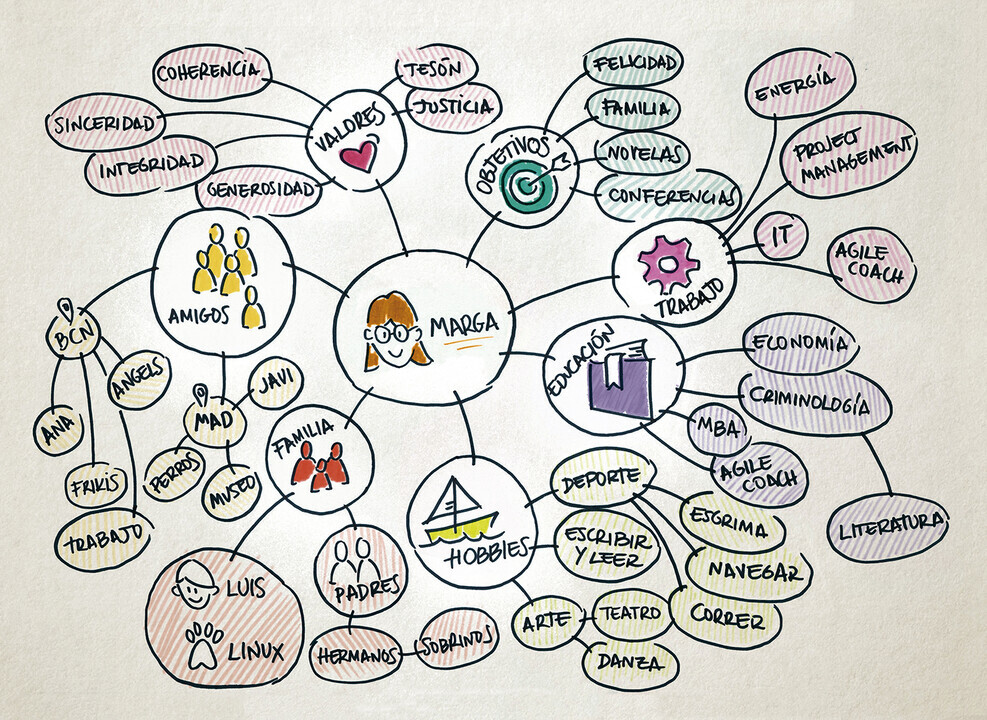 MARGA
VALORES
COHERENCIA
SINCERIDAD
INTEGRIDAD
GENEROSIDAD
TESÓN
JUSTICIA
OBJETIVOS
FELICIDAD
FAMILIA
NOVELAS
CONFERENCIAS
TRABAJO
ENERGÍA
PROJECT
MANAGEMENT
IT
AGILE
COACH
EDUCACIÓN
ECONOMÍA
CRIMINOLOGÍA
MBA
AGILE
COACH
LITERATURA
HOBBIES
DEPORTE
ESGRIMA
NAVEGAR
CORRER
ESCRIBIR
Y LEER
ARTE
TEATRO
DANZA
FAMILIA
PADRES
HERMANOS
SOBRINOS
LUIS
LINUX
AMIGOS
BCN
ANA
FRIKIS
ANGELS
TRABAJO
MAD
JAVI
PERROS
MUSEO